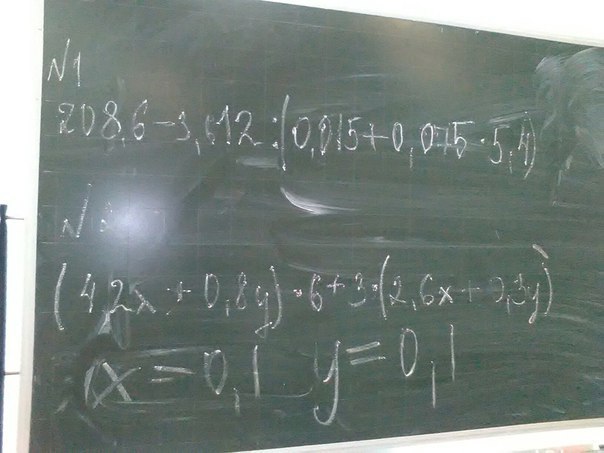 №1
208,6-3,612:(0,015+0,075·5,4)
№2
(4,2x+0,8y)·6+3·(2,6x+0,3y)
x=0,1 y=0,1